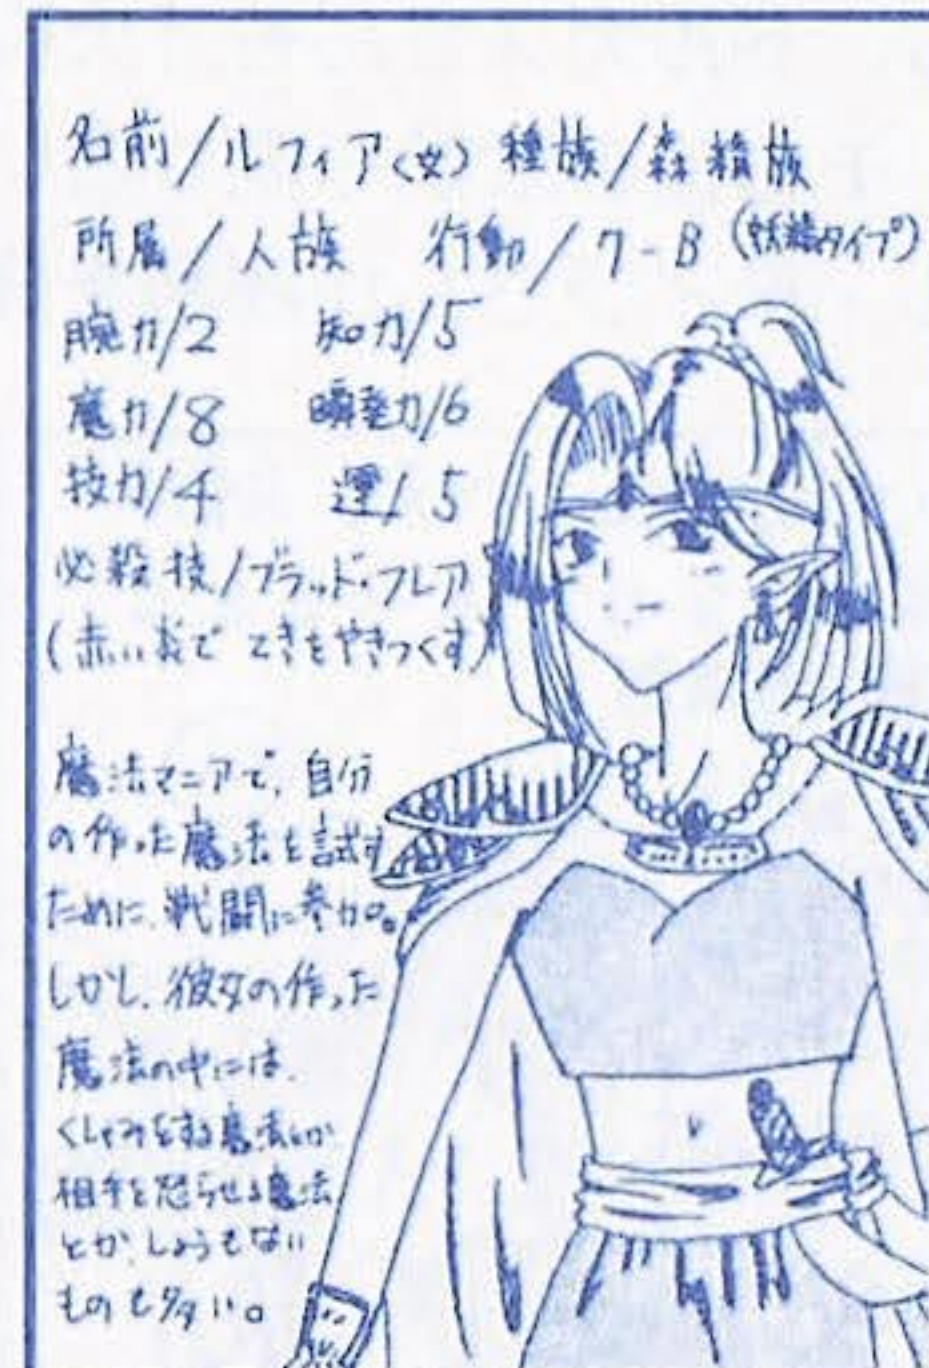 名前/ルフィア(女) 種族/森精族
所属/人族 行動/7-B (妖精タイプ)
腕力/2 知力/5
魔力/8 瞬発力/6
技力/4 運/5
必殺技/ブラッド・フレア
(赤い炎で てきをやきつくす)
魔法マニアで、自分
の作った魔法を試す
ために、戦闘に参加。
しかし、彼女の作った
魔法の中には、
くしゃみをする魔法とか
相手を怒らせる魔法
とか、しょうもない
ものも多い。